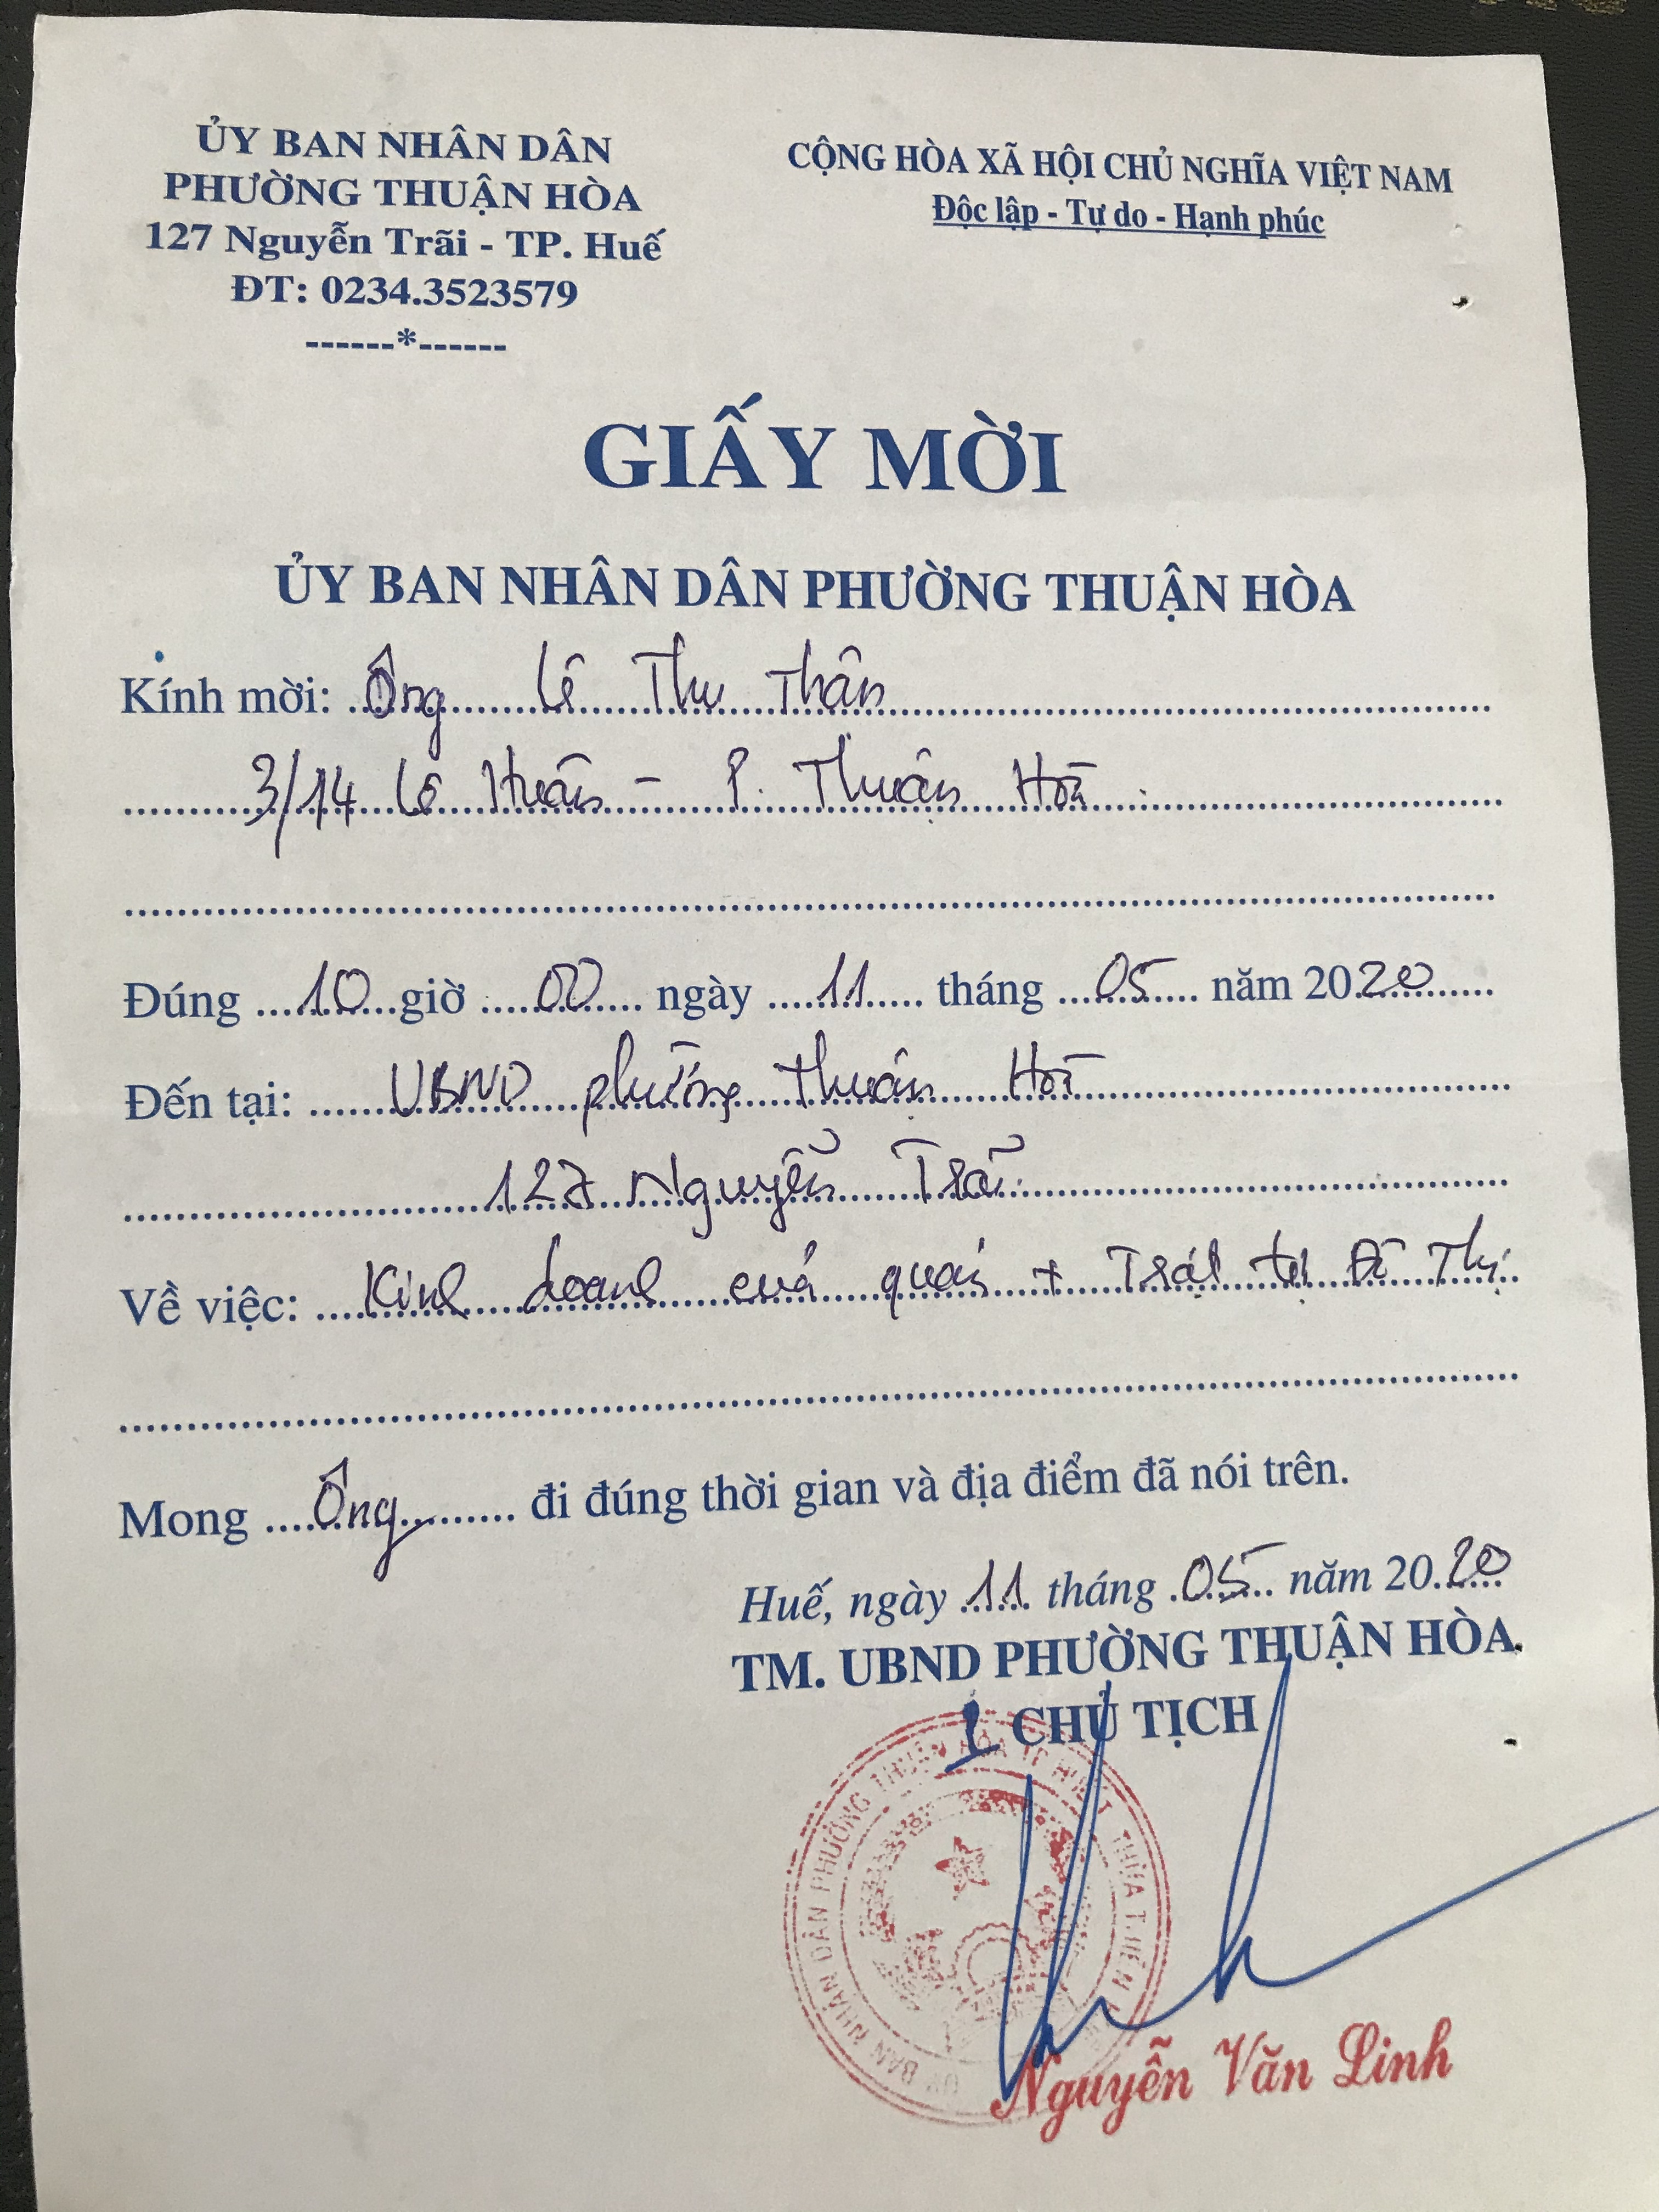 ỦY BAN NHÂN DÂN
PHƯỜNG THUẬN HÒA
127 Nguyễn Trãi - TP. Huế
ĐT: 0234.3523579
------*------
CỘNG HÒA XÃ HỘI CHỦ NGHĨA VIỆT NAM
Độc lập - Tự do - Hạnh phúc
GIẤY MỜI
ỦY BAN NHÂN DÂN PHƯỜNG THUẬN HÒA
Kính mời: Ông Lê Thu Thân
3/14 Lê Huân - P. Thuận Hòa
Đúng 10 giờ 00 ngày 11 tháng 05 năm 2020
Đến tại: UBND phường Thuận Hòa
127 Nguyễn Trãi
Về việc: Kinh doanh quán + Trật tự Đô Thị
Mong Ông đi đúng thời gian và địa điểm đã nói trên.
Huế, ngày 11 tháng 05 năm 2020
TM. UBND PHƯỜNG THUẬN HÒA
CHỦ TỊCH
ỦY BAN NHÂN DÂN PHƯỜNG THUẬN HÒA TP HUẾ T. THỪA THIÊN
Nguyễn Văn Linh